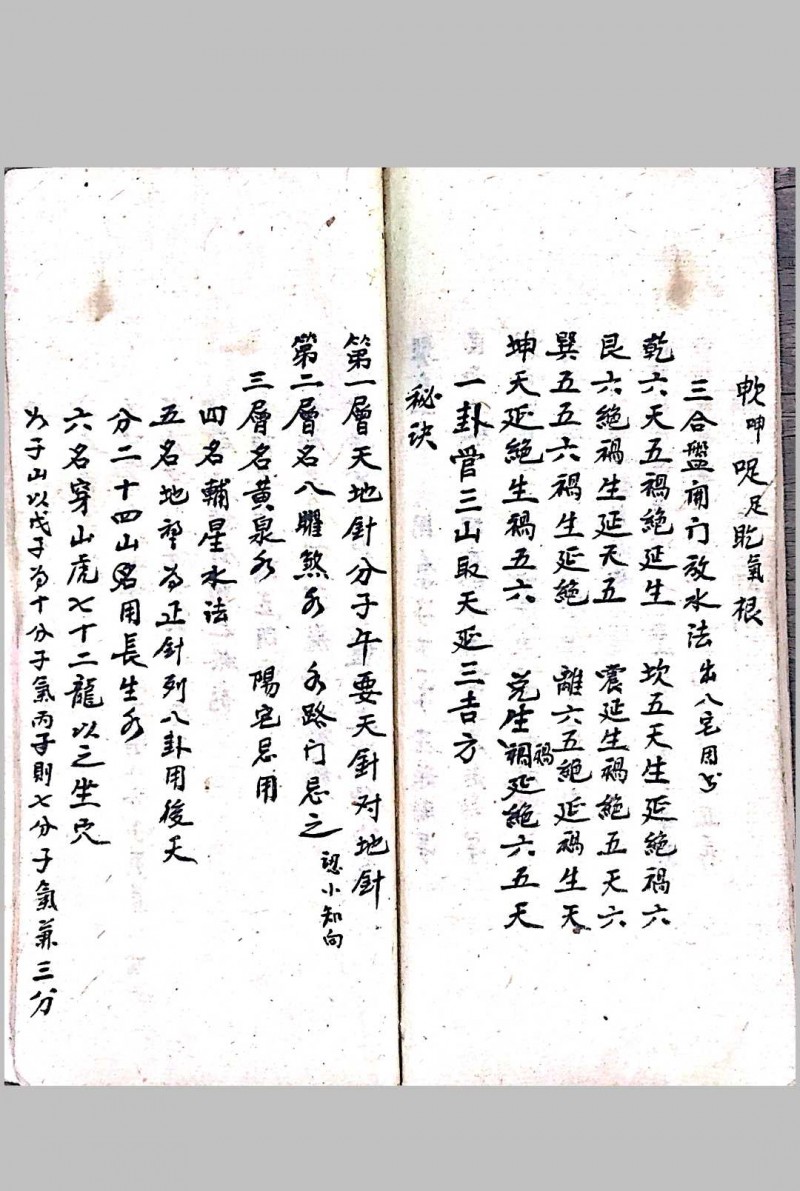 呻呢足盵氣根
三合盤開门放水法出八宅周书
乾六天五禍絶延生 坎五天生延絶禍六
艮六絶禍生延天五 震延生禍絶五天六
巽五五六禍生延絶 離六五絶延禍生天
坤天延絶生禍五六 兊生禍延絶六五天
禍
一卦管三山取天延三吉方
秘訣
第一層天地針分子午要天針对地針
第二層名八曜煞水 水路门忌之 認小知向
三層名黄泉水 陽宅忌用
四名輔星水法
五名地盤為正針列八卦用後天
分二十四山名用長生水
六名穿山虎七十二龍以之坐穴
如子山以戊子為十分子氣丙子則七分子氣兼三分